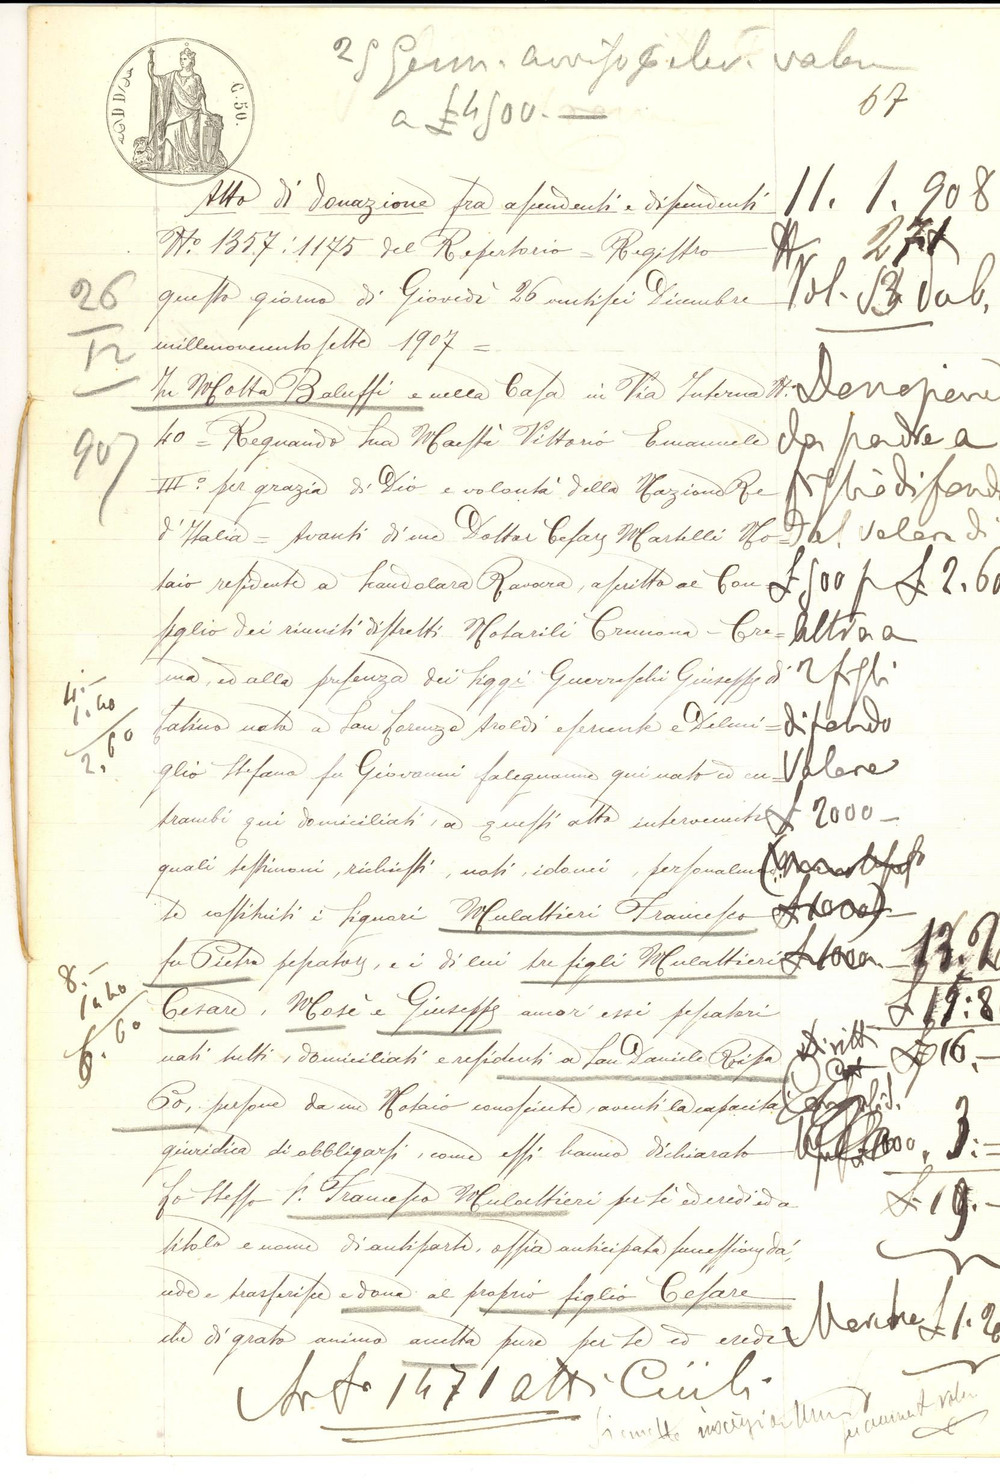 C. 50.
a £ 4500. —
67
Atto di donazione fra ascendenti e discendenti
N.º 1357:1175 del Repertorio = Registro
questo giorno di Giovedì 26 ventisei Dicembre
millenovecentosette 1907 =
In Motta Baluffi e nella Casa in Via Interna N.
40 = Regnando Sua Maestà Vittorio Emanuele
III.º per grazia di Dio e volontà della Nazione Re
d'Italia = Avanti di me Dottor Cesare Martelli No=
taio residente a Scandolara Ravara, ascritto al Con
siglio dei riuniti distretti Notarili Cremona - Cre=
ma, ed alla presenza dei Sigg.i Guereschi Giuseppe di
nato a San Lorenzo Aroldi esercente e Delmi=
glio Stefano fu Giovanni falegname qui nato ed en=
trambi qui domiciliati, a quest'atto intervenuti
quali testimoni, richiesti, noti, idonei, personalmen
te costituiti i signori Mulattieri Francesco
fu Pietro pescatore, e i di lui tre figli Mulattieri
Cesare, Mosè e Giuseppe amori essi pescatori
nati tutti, domiciliati e residenti a San Daniele Ripa
Po, persone da me Notaio conosciute, aventi la capacità
giuridica di obbligarsi, come essi hanno dichiarato
Lo stesso S. Francesco Mulattieri per sè ed eredi ed a
titolo e nome di antiparte, ossia anticipata successione dà,
cede e trasferisce e dona al proprio figlio Cesare
che di grato animo accetta pure per se ed eredi
1471 atti Civili
26
12
907
4.-
1.40
2.60
8.-
1.40
6.60
11. 1. 908
N. 271
Vol.
da padre a
valore di
£ 500 p £ 2.60
Altra a
2 figli
valore
£ 2000 -
£ 1000
£ 1000. -
£ 19:8
Diritti £ 16. -
3:=
£ 19. -
£ 1.20